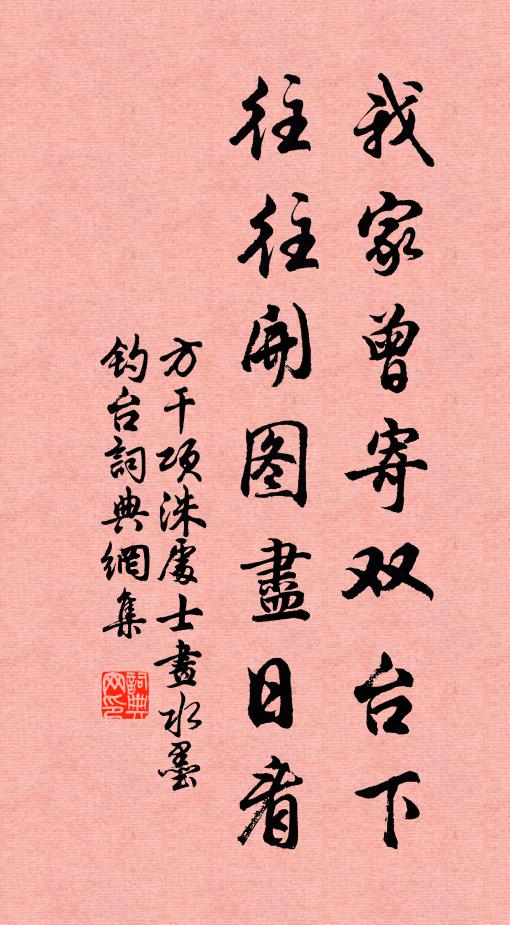 我家曾寄双台下
往往開图盡日看
方干项洙處士畫水墨
钓台詞典網集
詞典网印